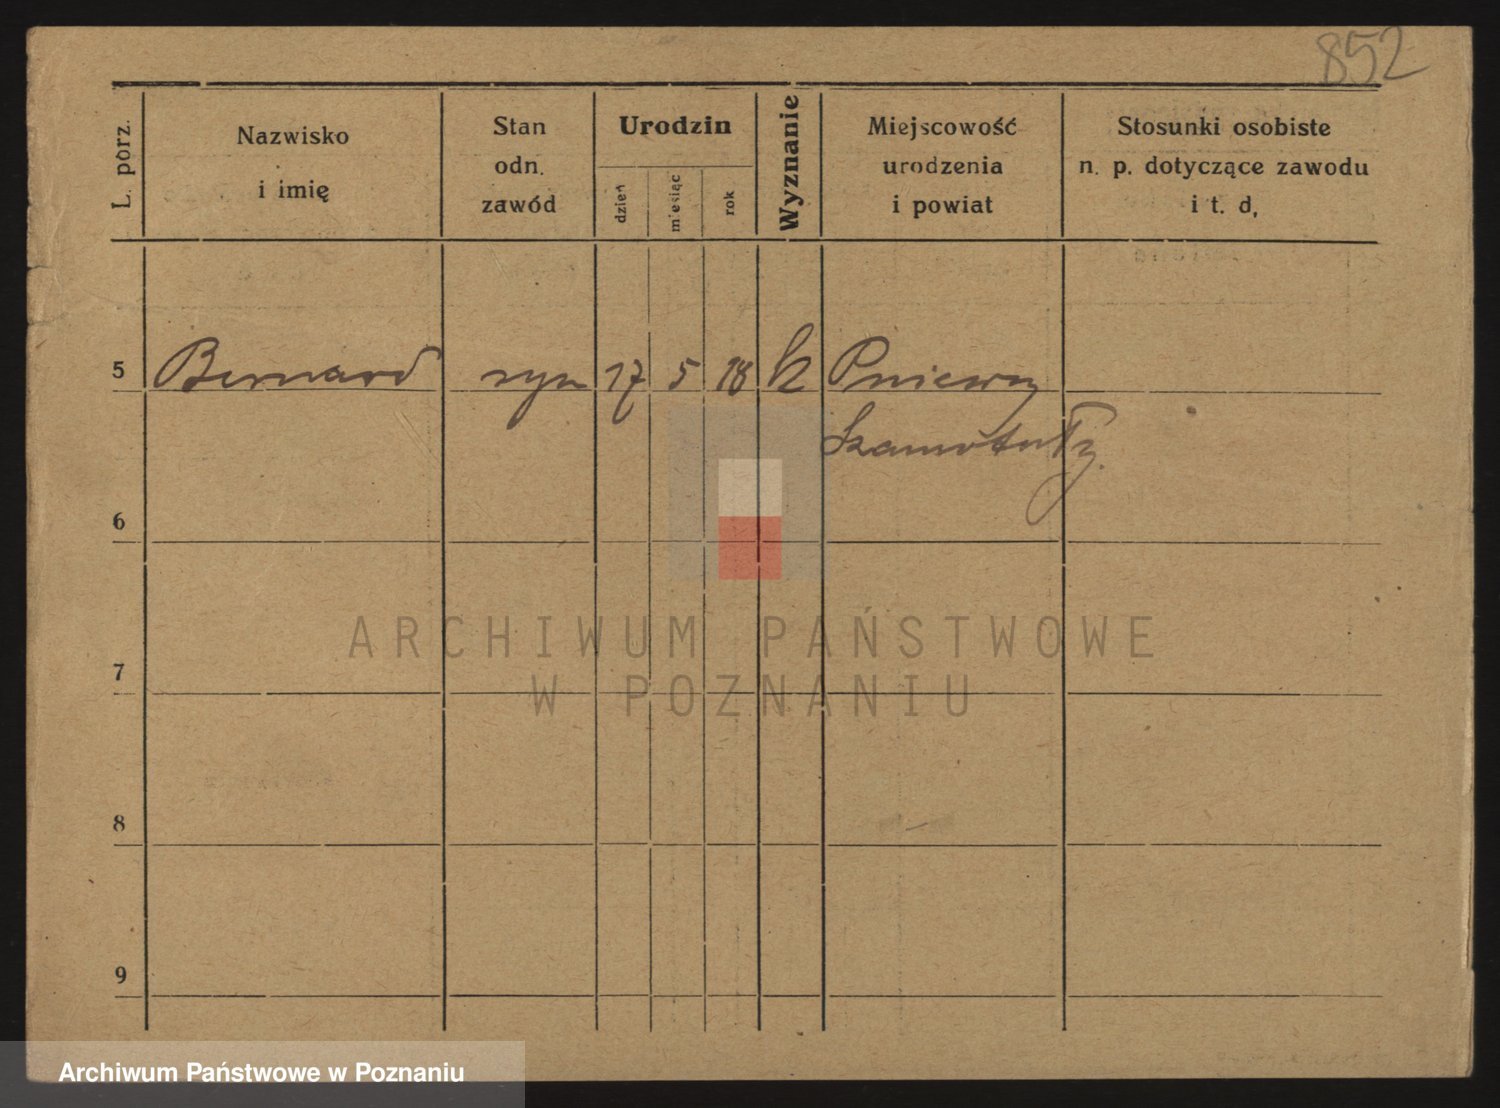 852
L. porz.
Nazwisko
i imię
Stan
odn.
zawód
Urodzin
dzień
miesiąc
rok
Wyznanie
Miejscowość
urodzenia
i powiat
Stosunki osobiste
n. p. dotyczące zawodu
i t. d,
5 Bernard syn 17 5 18 k Pniewy
Szamotuły.
6
7
8
9
ARCHIWUM PAŃSTWOWE
W POZNANIU
Archiwum Państwowe w Poznaniu